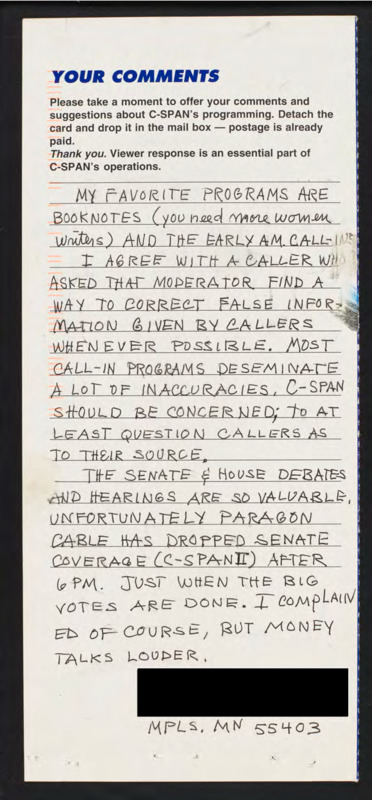 YOUR COMMENTS
Please take a moment to offer your comments and
suggestions about C-SPAN's programming. Detach the
card and drop it in the mail box — postage is already
paid.
Thank you. Viewer response is an essential part of
C-SPAN's operations.
MY FAVORITE PROGRAMS ARE
BOOKNOTES (you need more women
writers) AND THE EARLY AM CALL-INS
I AGREE WITH A CALLER WHO
ASKED THAT MODERATOR FIND A
WAY TO CORRECT FALSE INFOR-
MATION GIVEN BY CALLERS
WHENEVER POSSIBLE. MOST
CALL-IN PROGRAMS DESEMINATE
A LOT OF INACCURACIES. C-SPAN
SHOULD BE CONCERNED; TO AT
LEAST QUESTION CALLERS AS
TO THEIR SOURCE.
THE SENATE & HOUSE DEBATES
AND HEARINGS ARE SO VALUABLE,
UNFORTUNATELY PARAGON
CABLE HAS DROPPED SENATE
COVERAGE (C-SPAN II) AFTER
6 PM. JUST WHEN THE BIG
VOTES ARE DONE. I COMPLAIN
ED OF COURSE, BUT MONEY
TALKS LOUDER.
MPLS. MN 55403